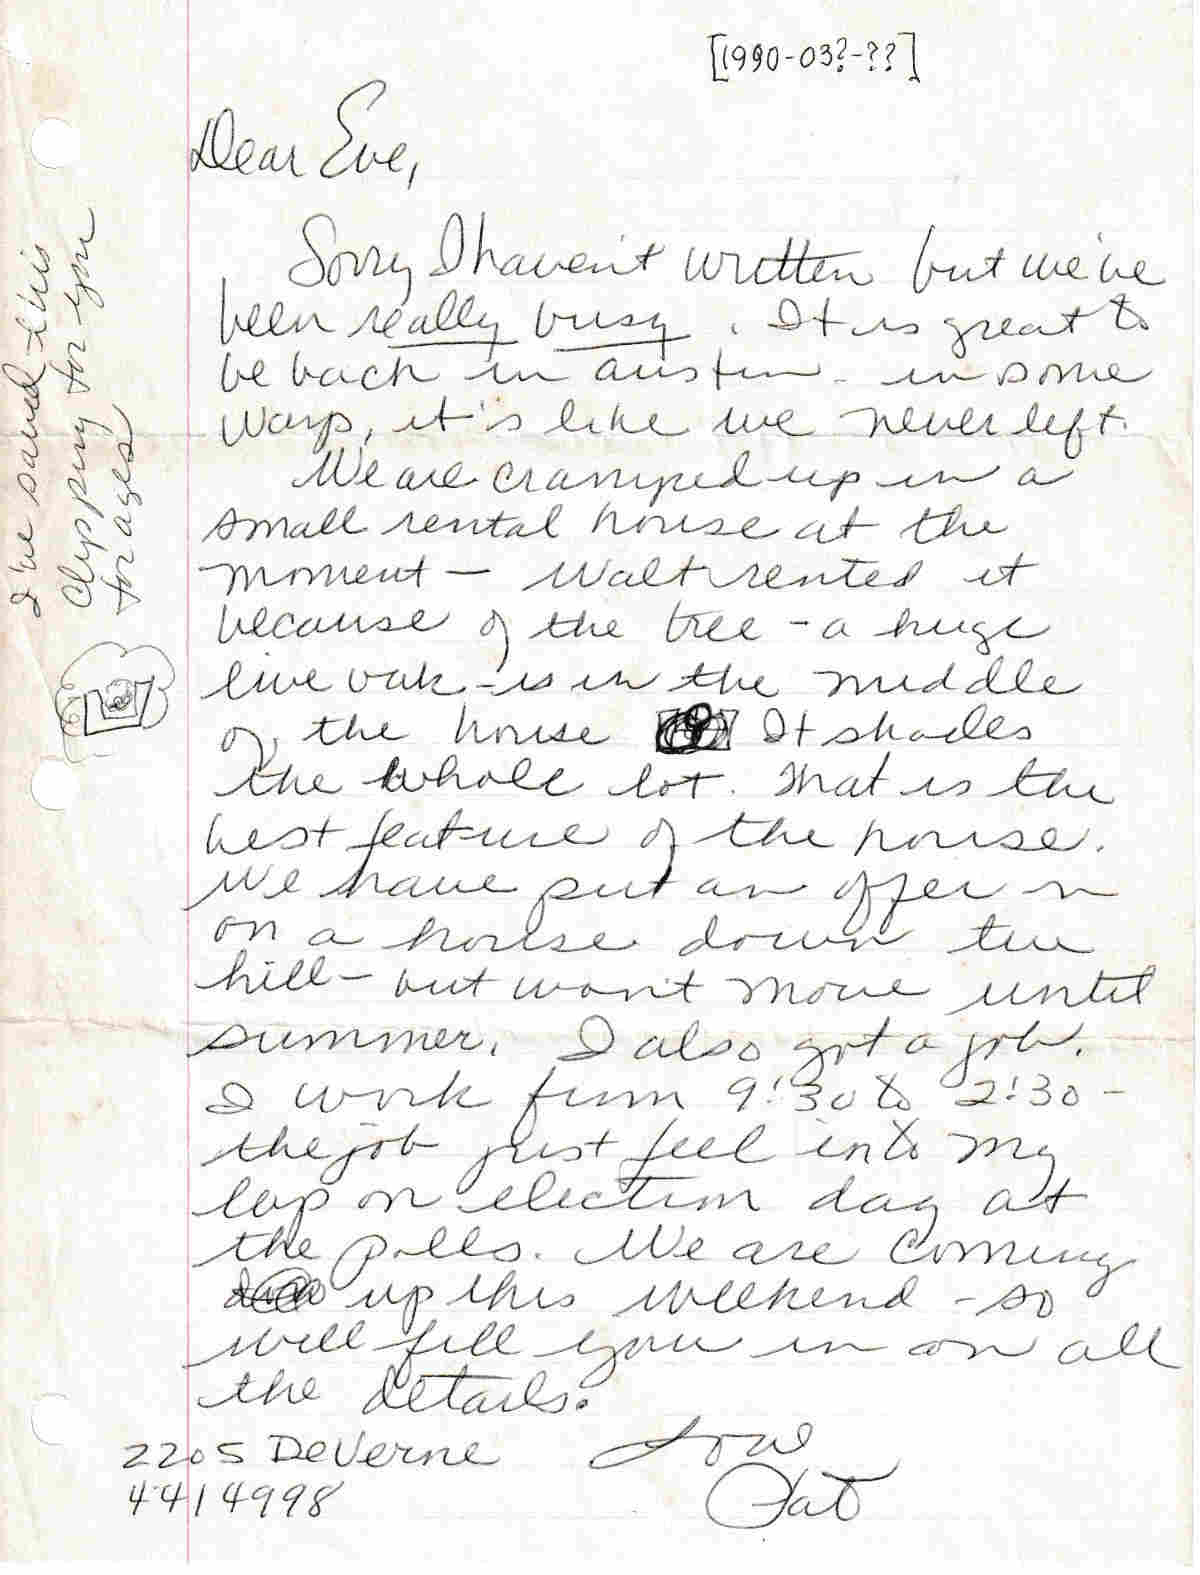 [1990-03?-??]
Dear Eve,
Sorry I haven't written but we've
been really busy. It is great to
be back in austin - in some
ways, it's like we never left.
We are cramped up in a
small rental house at the
moment - Walt rented it
because of the tree - a huge
live oak - is in the middle
of the house It shades
the whole lot. That is the
best feature of the house.
We have put an offer in
on a house down the
hill - but won't move until
summer. I also got a job.
I work from 9:30 to 2:30 -
the job just feel into my
lap on election day at
the polls. We are coming
up this weekend - so
will fill you in on all
the details.
Love
Pat
2205 DeVerne
441 4998
I've saved this
Clipping for you
for ages